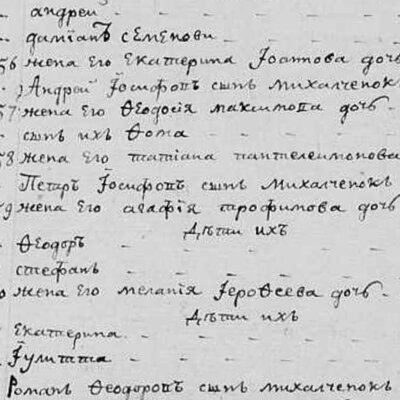 андрей
даміанъ семенови
56 жена Его Екатерина Іоаннова дочь
Андрей Іосифовъ сынъ михалченокъ
57 жена Его Ѳеодосія максимова дочь
сынъ ихъ Ѳома
58 жена Его татіана пантелеимонова
Петръ Іосифовъ сынъ михалченокъ
59 жена Его агафія трофимова дочь
Дѣти ихъ
Ѳеодоръ
стефанъ
жена Его меланія Іероѳеева дочь
Дѣти ихъ
Екатерина
Іулитта
Романъ Ѳеодоровъ сынъ михалченокъ